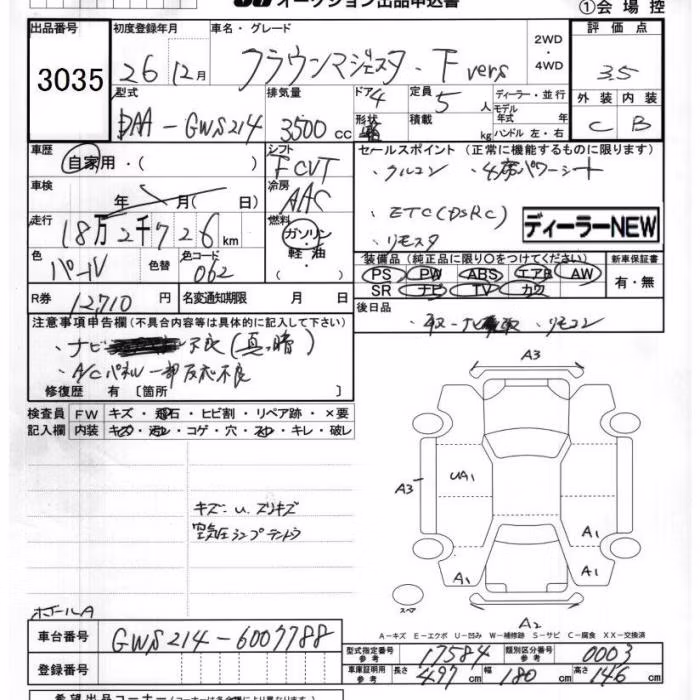 オークション出品申込書
①会場控
出品番号
3035
初度登録年月
26 12月
車名・グレード
クラウンマジェスタ・Fvers
2WD
・
4WD
評価点
3.5
型式
DAA-GWS214
排気量
3500 cc
ドア 4
形状
定員 5 人
積載 kg
ディーラー・並行
モデル
年式 年
ハンドル 左・右
外装 内装
C B
車歴
自家用・( )
シフト
FCVT
セールスポイント (正常に機能するものに限ります)
・クルコン ・4席パワーシート
・ETC(DSRC)
・リモスタ
ディーラーNEW
車検
年 月( 日)
冷房
AAC
走行
18万2千726km
燃料
ガソリン・
軽油・
( )
色
パール
色替
色コード
062
装備品 (純正品に限り○をつけてください)
PS PW ABS エアB AW
SR ナビ TV カワ
新車保証書
有・無
R券
12,710円
名変通知期限 月 日
後日品
注意事項申告欄(不具合内容等は具体的に記入して下さい)
・A/Cパネル一部反応不良
修復歴 有 [箇所 ]
検査員 FW キズ・飛石・ヒビ割・リペア跡・×要
記入欄 内装 キズ・汚レ・コゲ・穴・スレ・キレ・破レ
A3
A3
UA1
A1
A1
A1
A2
キズ・U、スリキズ
スペア
ホイールA
A-キズ E-エクボ U-凹み W-補修跡 S-サビ C-腐食 XX-交換済
車台番号
GWS214-6007788
型式指定番号
参考
17584
類別区分番号
参考
0003
登録番号
車庫証明用
参考
長さ 497cm 幅 180cm 高さ 146cm
希望出品コーナー(コーナーは会場により異なります)